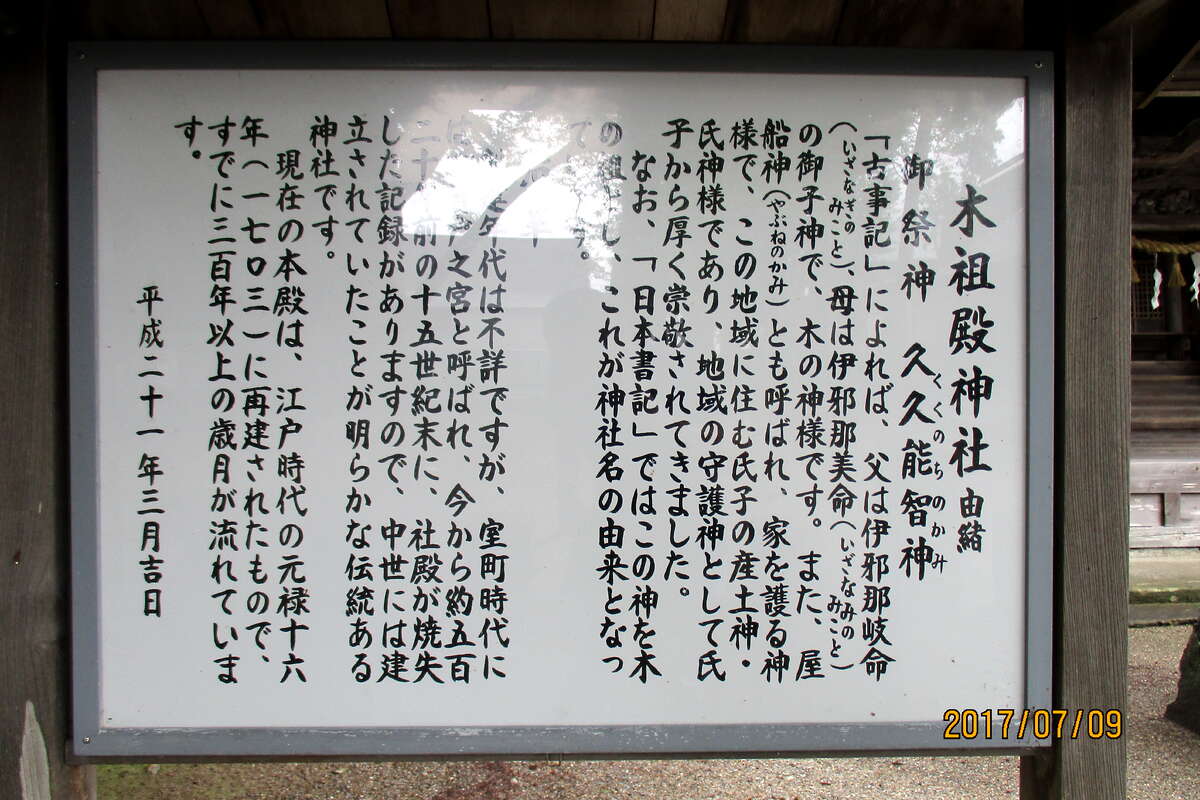 木祖殿神社 由緒
御祭神 久久能智神
くくのちのかみ
「古事記」によれば、父は伊邪那岐命
(いざなぎのみこと)、母は伊邪那美命(いざなみのみこと)
の御子神で、木の神様です。また、屋
船神(やぶねのかみ)とも呼ばれ、家を護る神
様で、この地域に住む氏子の産土神・
氏神様であり、地域の守護神として氏
子から厚く崇敬されてきました。
なお、「日本書記」ではこの神を木
の祖とし、これが神社名の由来となっ
て
す。
年代は不詳ですが、室町時代に
之宮と呼ばれ、今から約五百
二十 前の十五世紀末に、社殿が焼失
した記録がありますので、中世には建
立されていたことが明らかな伝統ある
神社です。
現在の本殿は、江戸時代の元禄十六
年(一七〇三)に再建されたもので、
すでに三百年以上の歳月が流れていま
す。
平成二十一年三月吉日
2017/07/09